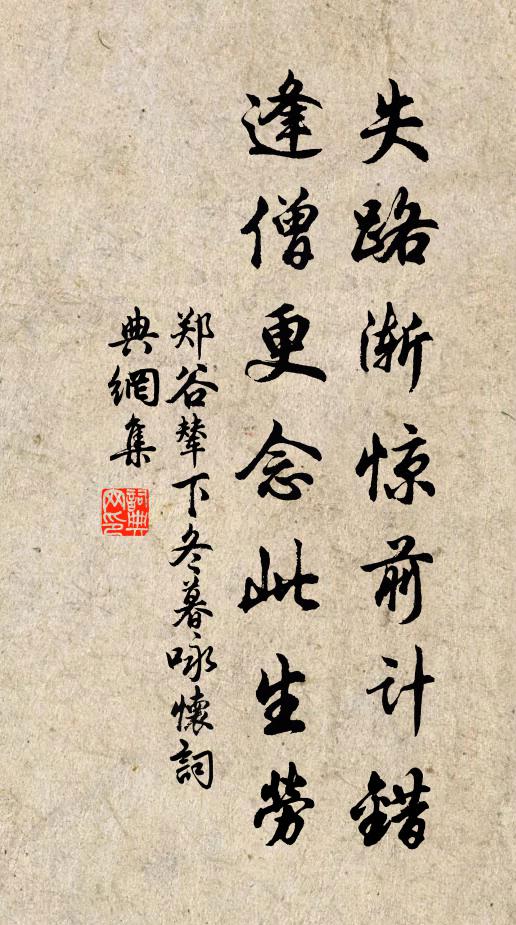 失路渐惊前计错
逢僧更念此生劳
郑谷辇下冬暮咏怀词
典網集
詞典网印